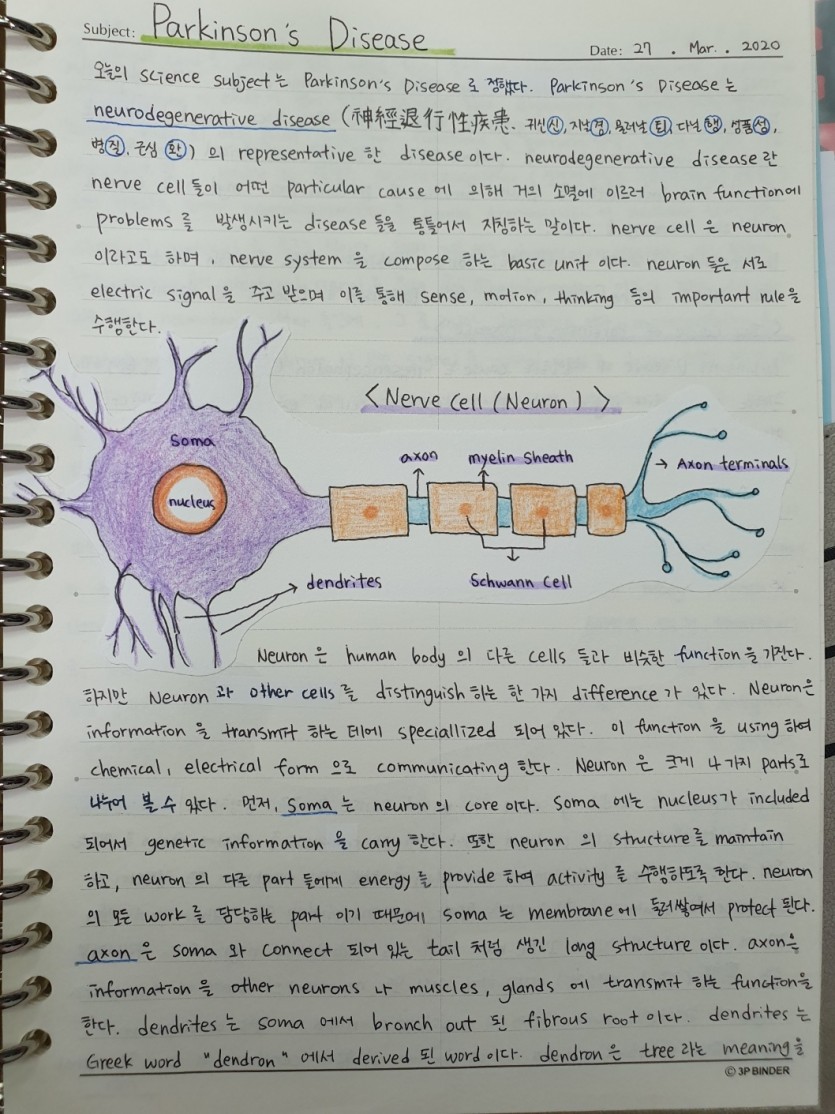 Subject: Parkinson's Disease
Date: 27 . Mar. . 2020
오늘의 science subject는 Parkinson's Disease로 정했다. Parkinson's Disease는
neurodegenerative disease (神經退行性疾患. 귀신신, 지날경, 물러날 퇴, 다닐 행, 성품성,
병질, 근심 환) 의 representative 한 disease이다. neurodegenerative disease란
nerve cell들이 어떤 particular cause에 의해 거의 소멸에 이르러 brain function에
problems를 발생시키는 disease들을 통틀어서 지칭하는 말이다. nerve cell은 neuron
이라고도 하며, nerve system을 compose 하는 basic unit 이다. neuron 들은 서로
electric signal을 주고 받으며 이를 통해 sense, motion, thinking 등의 important rule을
수행한다.
<Nerve cell (Neuron)>
Soma
nucleus
axon
myelin sheath
→ Axon terminals
dendrites
Schwann Cell
Neuron은 human body의 다른 cells 들과 비슷한 function을 가진다.
하지만 Neuron과 other cells를 distinguish하는 한 가지 difference가 있다. Neuron은
information을 transmit 하는 데에 speciallized 되어 있다. 이 function을 using하여
chemical, electrical form으로 communicating 한다. Neuron은 크게 4가지 parts로
나누어 볼 수 있다. 먼저, Soma는 neuron의 core이다. Soma에는 nucleus가 included
되어서 genetic information을 carry 한다. 또한 neuron의 structure를 maintain
하고, neuron의 다른 part들에게 energy를 provide 하여 activity를 수행하도록 한다. neuron
의 모든 work를 담당하는 part이기 때문에 soma는 membrane에 둘러쌓여서 protect 된다.
axon은 soma와 connect 되어 있는 tail처럼 생긴 long structure이다. axon은
information을 other neurons나 muscles, glands에 transmit 하는 function을
한다. dendrites는 soma에서 branch out 된 fibrous root이다. dendrites는
Greek word "dendron"에서 derived 된 word이다. dendron은 tree라는 meaning을
© 3P BINDER